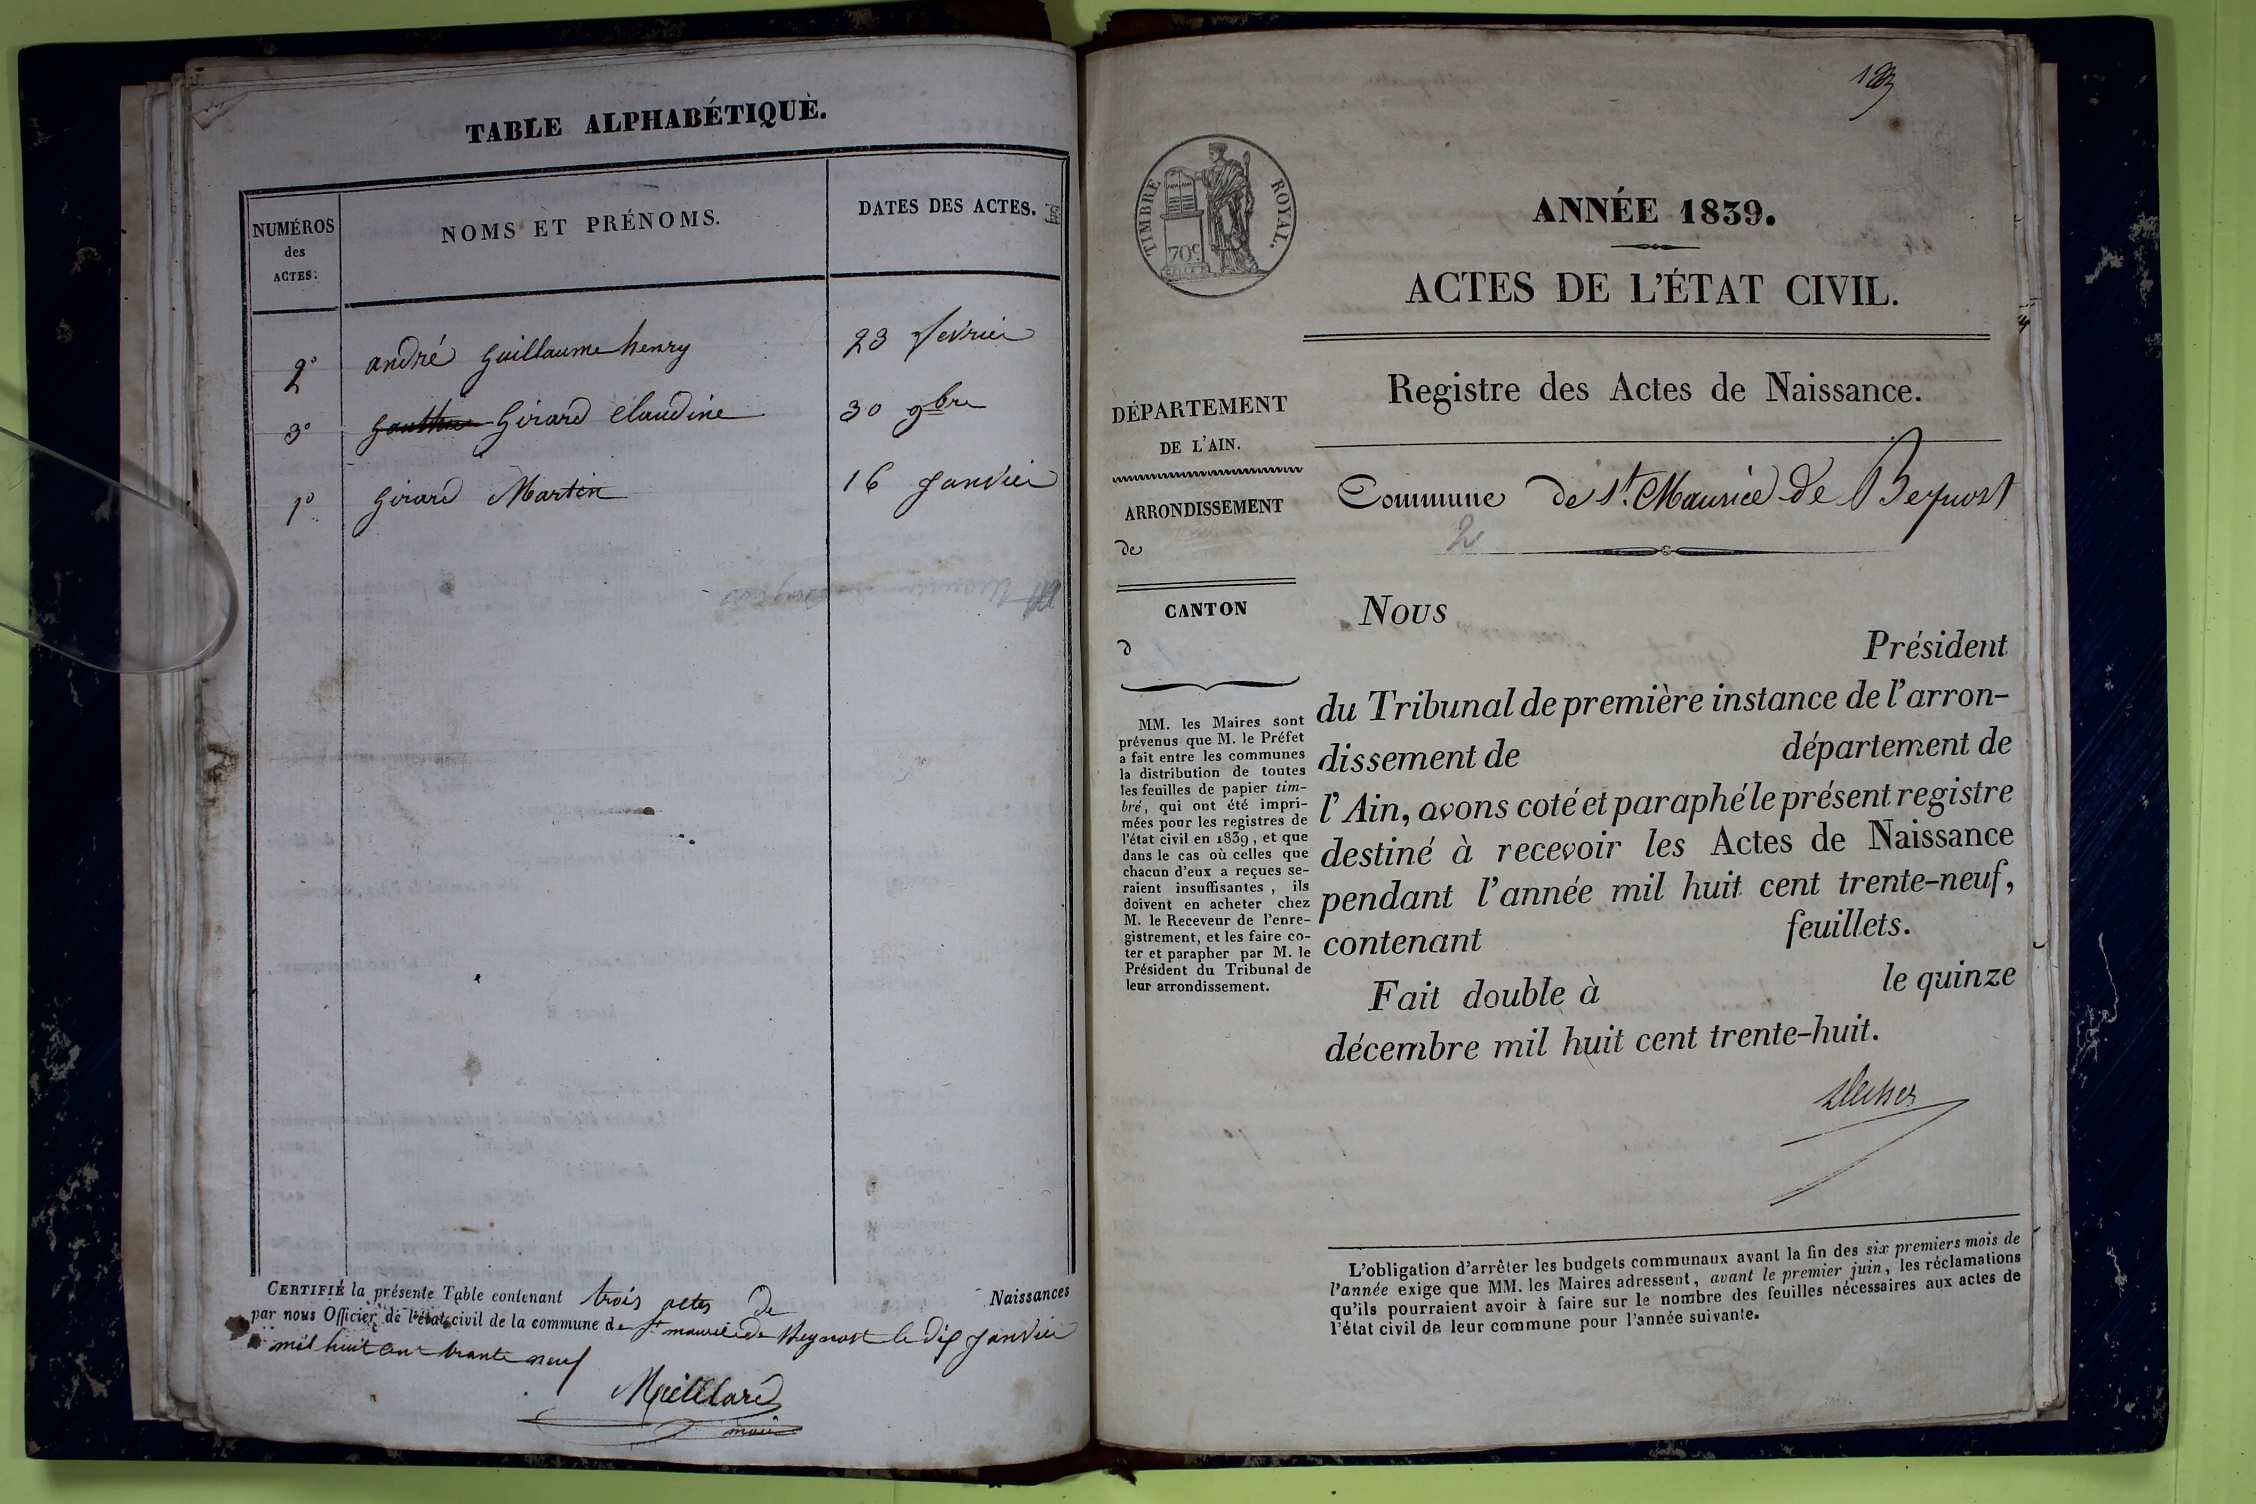 TABLE ALPHABÉTIQUE.
NUMÉROS
des
ACTES.
NOMS ET PRÉNOMS.
DATES DES ACTES.
2° andré Guillaume henry 23 fevrier
3° Gauthier Girard Claudine 30 9bre
1° Girard Martin 16 Janvier
CERTIFIÉ la présente Table contenant trois actes de Naissances
par nous Officier de l'état civil de la commune de St maurice de Beynost le dix Janvier
mil huit cent trente neuf
maire
TIMBRE ROYAL.
70c
ANNÉE 1839.
ACTES DE L'ÉTAT CIVIL.
Registre des Actes de Naissance.
DÉPARTEMENT
DE L'AIN.
ARRONDISSEMENT
de
CANTON
d
MM. les Maires sont
prévenus que M. le Préfet
a fait entre les communes
la distribution de toutes
les feuilles de papier tim-
bré, qui ont été impri-
mées pour les registres de
l'état civil en 1839, et que
dans le cas où celles que
chacun d'eux a reçues se-
raient insuffisantes, ils
doivent en acheter chez
M. le Receveur de l'enre-
gistrement, et les faire co-
ter et parapher par M. le
Président du Tribunal de
leur arrondissement.
Commune de St. Maurice de Beynost
2
Nous
Président
du Tribunal de première instance de l'arron-
dissement de département de
l'Ain, avons coté et paraphé le présent registre
destiné à recevoir les Actes de Naissance
pendant l'année mil huit cent trente-neuf,
contenant feuillets.
Fait double à le quinze
décembre mil huit cent trente-huit.
L'obligation d'arrêter les budgets communaux avant la fin des six premiers mois de
l'année exige que MM. les Maires adressent, avant le premier juin, les réclamations
qu'ils pourraient avoir à faire sur le nombre des feuilles nécessaires aux actes de
l'état civil de leur commune pour l'année suivante.